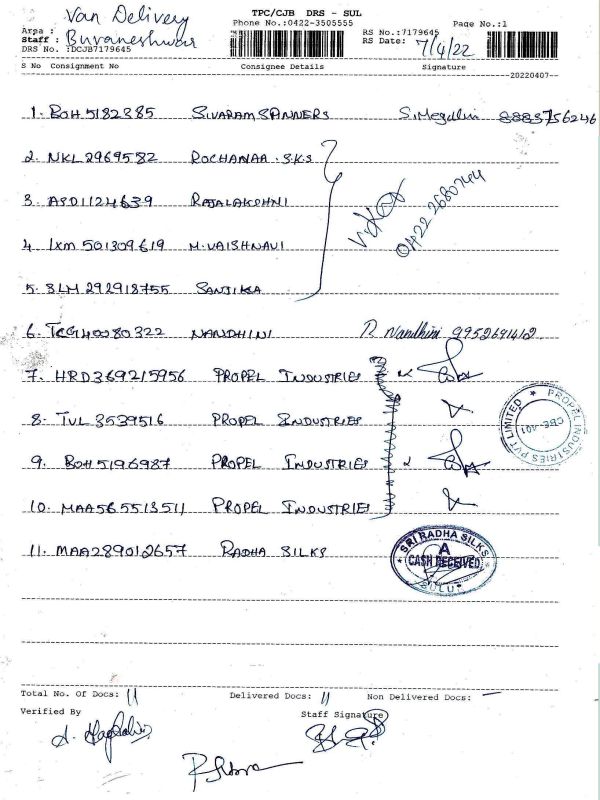 Van Delivery
TPC/CJB DRS - SUL
Phone No.:0422-3505555
Page No.:1
Area :
Staff : Buvaneshwar
RS No.:7179645
RS Date: 7/4/22
DRS No. :DCJB7179645
S No Consignment No Consignee Details Signature
20220407
1. BOH 5182385 SIVARAM SPINNERS 8883756246
2. NKL 2969582 ROCHANAA S.K.S
3. ASD1124639 RAJALAKSHNI
0422 2680744
4. IXM 501309619 M.VAISHNAVI
5. SLM 292918755 SANJIKA
6. TCG140080322 NANDHINI R. Nandhini 9952691412
7. HRD369215956 PROPEL INDUSTRIES
PROPEL INDUSTRIES PVT LIMITED
8. TVL 3539516 PROPEL INDUSTRIES
CBE-401
9. BOH5196987 PROPEL INDUSTRIES
10. MAA565513511 PROPEL INDUSTRIES
11. MAA289012657 RADHA SILKS
SRI RADHA SILKS
A
CASH RECEIVED
SULUR
Total No. Of Docs: 11 Delivered Docs: 11 Non Delivered Docs: —
Verified By Staff Signature